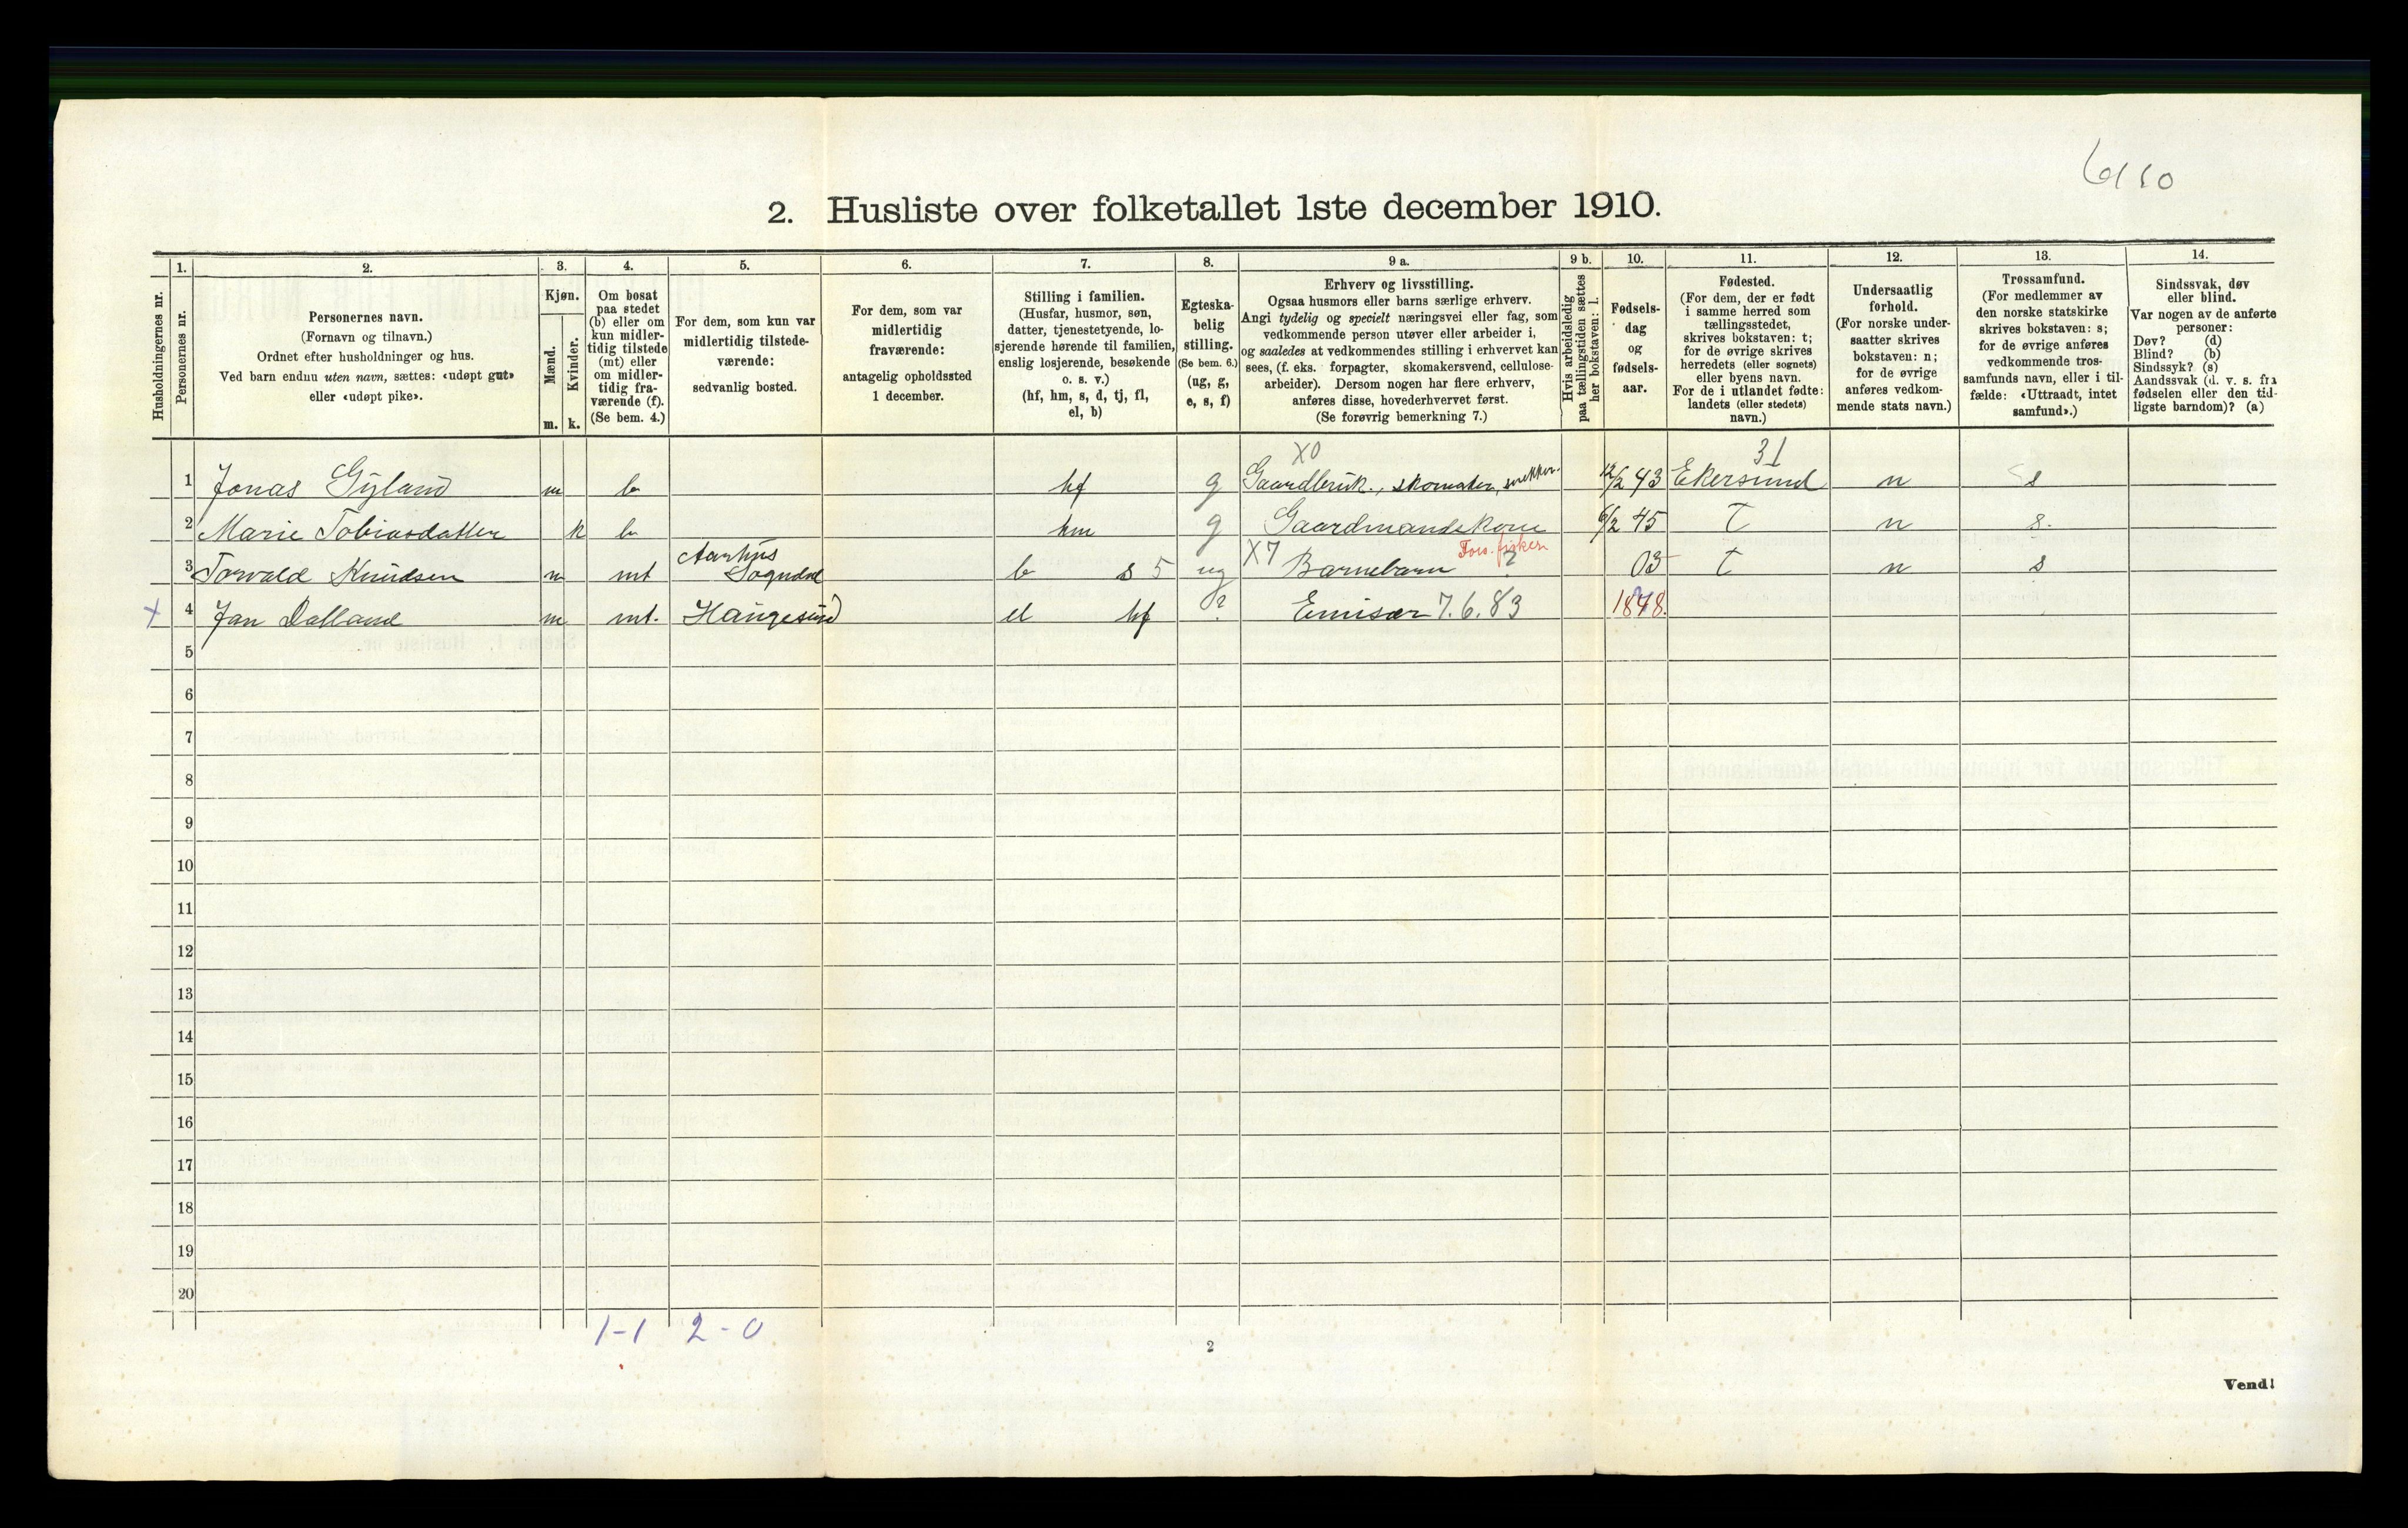 2. Husliste over folketallet 1ste december 1910.
Husholdningernes nr.
1.
Personernes nr.
2.
Personernes navn.
(Fornavn og tilnavn.)
Ordnet efter husholdninger og hus.
Ved barn endnu uten navn, sættes: «udøpt gut»
eller «udøpt pike».
3.
Kjøn.
Mænd.
Kvinder.
m. k.
4.
Om bosat
paa stedet
(b) eller om
kun midler-
tidig tilstede
(mt) eller
om midler-
tidig fra-
værende (f).
(Se bem. 4.)
5.
For dem, som kun var
midlertidig tilstede-
værende:
sedvanlig bosted.
6.
For dem, som var
midlertidig
fraværende:
antagelig opholdssted
1 december.
7.
Stilling i familien.
(Husfar, husmor, søn,
datter, tjenestetyende, lo-
sjerende hørende til familien,
enslig losjerende, besøkende
o. s. v.)
(hf, hm, s, d, tj, fl,
el, b)
8.
Egteska-
belig
stilling.
(Se bem. 6.)
(ug, g,
e, s, f)
9 a.
Erhverv og livsstilling.
Ogsaa husmors eller barns særlige erhverv.
Angi tydelig og specielt næringsvei eller fag, som
vedkommende person utøver eller arbeider i,
og saaledes at vedkommendes stilling i erhvervet kan
sees, (f. eks. forpagter, skomakersvend, cellulose-
arbeider). Dersom nogen har flere erhverv,
anføres disse, hovederhvervet først.
(Se forøvrig bemerkning 7.)
9 b.
Hvis arbeidsledig
paa tællingstiden sættes
her bokstaven: l.
10.
Fødsels-
dag
og
fødsels-
aar.
11.
Fødested.
(For dem, der er født
i samme herred som
tællingsstedet,
skrives bokstaven: t;
for de øvrige skrives
herredets (eller sognets)
eller byens navn.
For de i utlandet fødte:
landets (eller stedets)
navn.)
12.
Undersaatlig
forhold.
(For norske under-
saatter skrives
bokstaven: n;
for de øvrige
anføres vedkom-
mende stats navn.)
13.
Trossamfund.
(For medlemmer av
den norske statskirke
skrives bokstaven: s;
for de øvrige anføres
vedkommende tros-
samfunds navn, eller i til-
fælde: «Uttraadt, intet
samfund».)
14.
Sindssvak, døv
eller blind.
Var nogen av de anførte
personer:
Døv? (d)
Blind? (b)
Sindssyk? (s)
Aandssvak (d. v. s. fra
fødselen eller den tid-
ligste barndom)? (a)
X0 31
1 Jonas Gyland m b hf g Gaardbruk., skomaker, snekker. 12/2 43 Ekersund n s
2 Marie Tobiasdatter k b hm g Gaardmandskone 6/2 45 t n s.
Aarhus X7 Fors. fisker
3 Torvald Knudsen m mt Sogndal b s 5 ug Barnebarn ? 03 t n s
X 4 Jan Dalland m mt. Haugesund el hf ? Emisær 7.6.83
5
6
7
8
9
10
11
12
13
14
15
16
17
18
19
20
1-1 2-0
2
Vend!